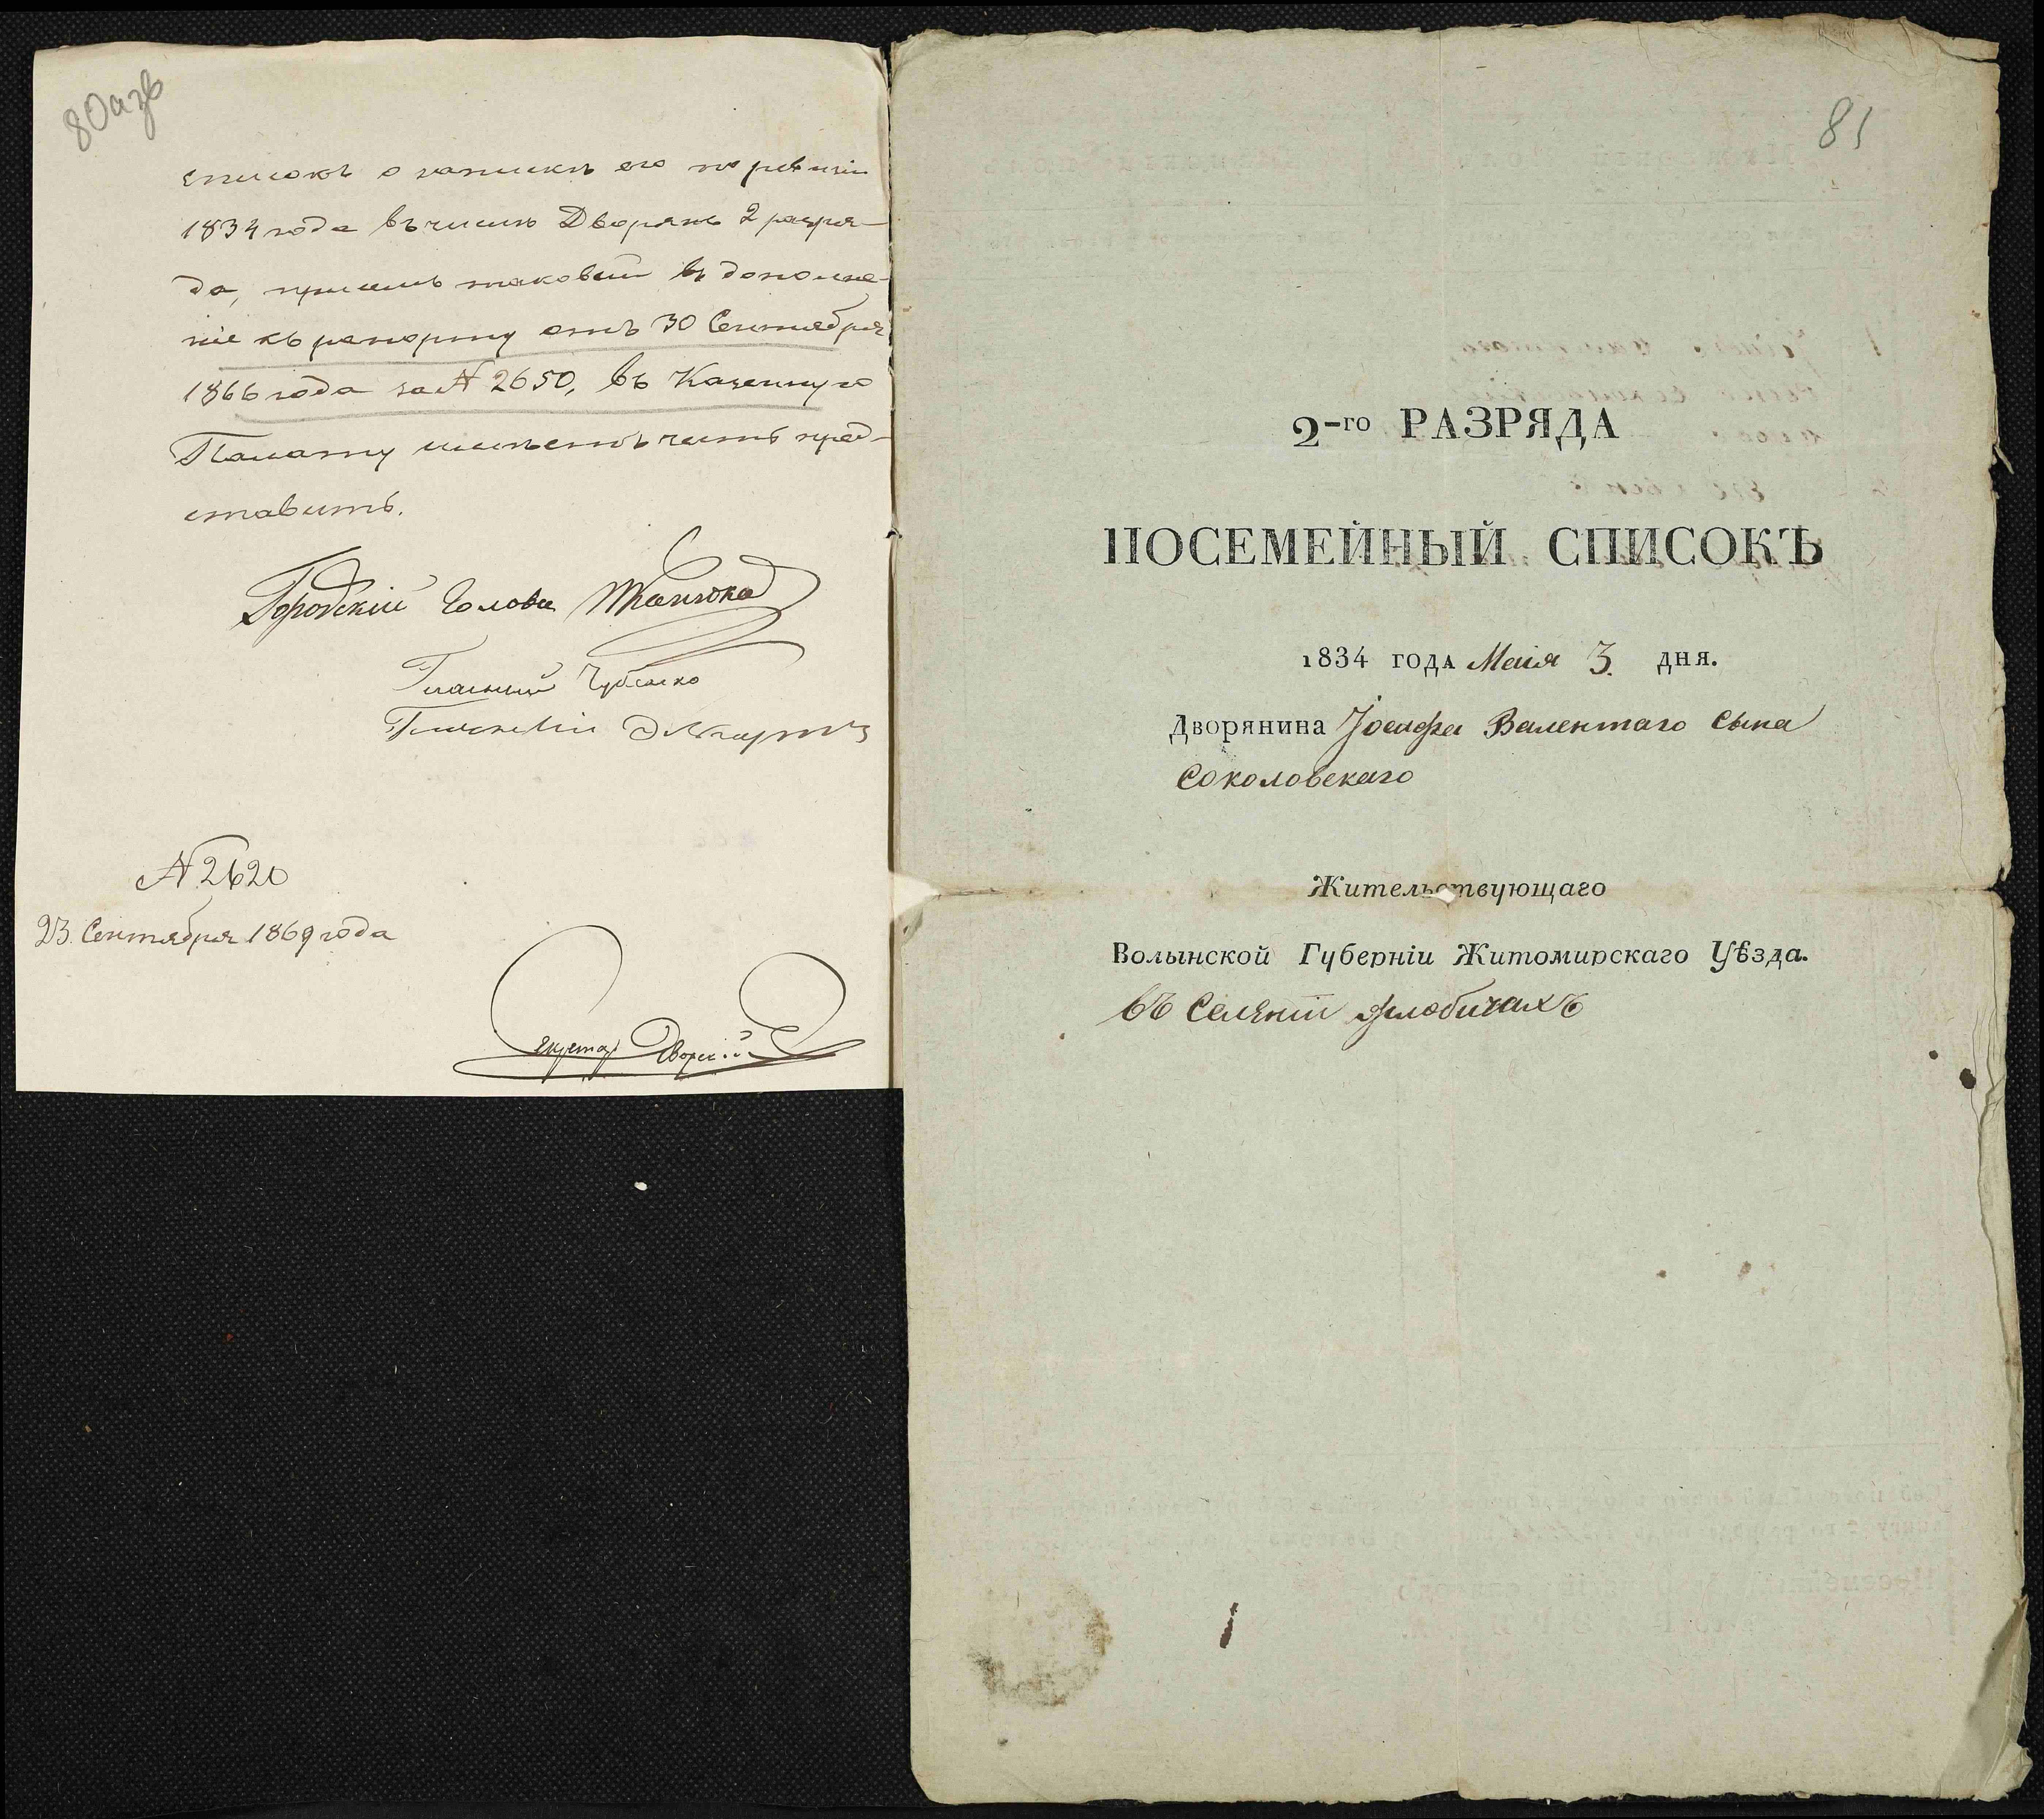 80 азв
списокъ о запискѣ его по ревизіи
1834 года въ число Дворянъ 2 разря-
да, при семъ таковый въ дополне-
ніе къ рапорту отъ 30 Сентября
1866 года за № 2650, въ Казенную
Палату имѣетъ честь пред-
ставить.
Городскій Голова
Гласный
Гласный
№ 2620
23 Сентября 1869 года
Секретарь
81
2-го РАЗРЯДА
ПОСЕМЕЙНЫЙ СПИСОКЪ
1834 года Маія 3 дня.
Дворянина Іосифа Валентаго Сына
Соколовскаго
Жительствующаго
Волынской Губерніи Житомирскаго Уѣзда.
въ Селеніи